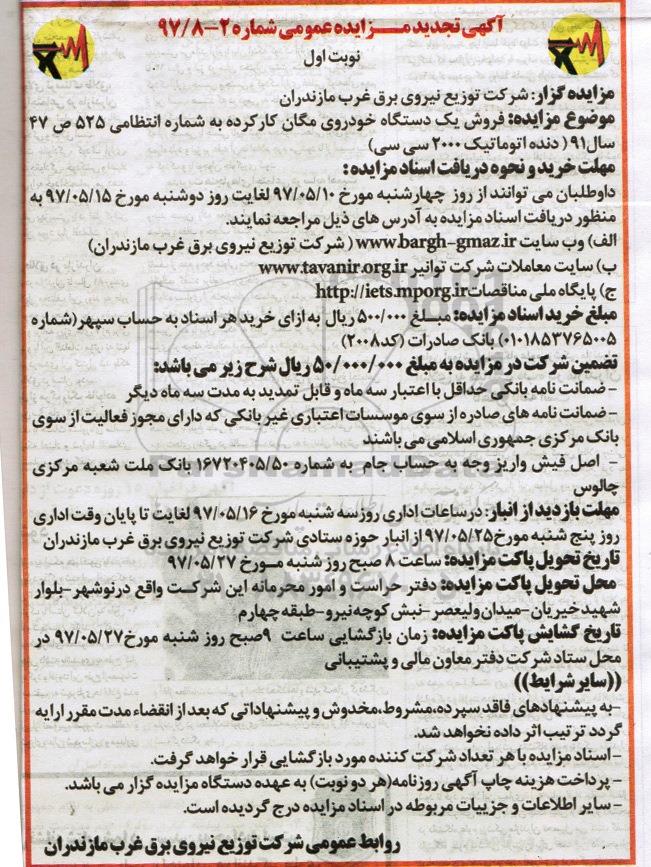 آگهی تجدید مزایده عمومی شماره ۲-۹۷/۸
نوبت اول
مزایده گزار: شرکت توزیع نیروی برق غرب مازندران
موضوع مزایده: فروش یک دستگاه خودروی مگان کارکرده به شماره انتظامی ۵۲۵ ص ۴۷
سال ۹۱ ( دنده اتوماتیک ۲۰۰۰ سی سی)
مهلت خرید و نحوه دریافت اسناد مزایده :
داوطلبان می توانند از روز چهارشنبه مورخ ۹۷/۰۵/۱۰ لغایت روز دوشنبه مورخ ۹۷/۰۵/۱۵ به
منظور دریافت اسناد مزایده به آدرس های ذیل مراجعه نمایند.
الف) وب سایت www.bargh-gmaz.ir ( شرکت توزیع نیروی برق غرب مازندران)
ب) سایت معاملات شرکت توانیر www.tavanir.org.ir
ج) پایگاه ملی مناقصات http://iets.mporg.ir
مبلغ خرید اسناد مزایده: مبلغ ۵۰۰/۰۰۰ ریال به ازای خرید هر اسناد به حساب سپهر (شماره
۰۱۰۱۸۵۳۷۶۵۰۰۵) بانک صادرات (کد ۲۰۰۸)
تضمین شرکت در مزایده به مبلغ ۵۰/۰۰۰/۰۰۰ ریال شرح زیر می باشد:
- ضمانت نامه بانکی حداقل با اعتبار سه ماه و قابل تمدید به مدت سه ماه دیگر
- ضمانت نامه های صادره از سوی موسسات اعتباری غیر بانکی که دارای مجوز فعالیت از سوی
بانک مرکزی جمهوری اسلامی می باشند
- اصل فیش واریز وجه به حساب جام به شماره ۱۶۷۲۰۴۰۵/۵۰ بانک ملت شعبه مرکزی
چالوس
مهلت بازدید از انبار: در ساعات اداری روز سه شنبه مورخ ۹۷/۰۵/۱۶ لغایت تا پایان وقت اداری
روز پنج شنبه مورخ ۹۷/۰۵/۲۵ از انبار حوزه ستادی شرکت توزیع نیروی برق غرب مازندران
تاریخ تحویل پاکت مزایده: ساعت ۸ صبح روز شنبه مورخ ۹۷/۰۵/۲۷
محل تحویل پاکت مزایده: دفتر حراست و امور محرمانه این شرکت واقع در نوشهر-بلوار
شهید خیریان-میدان ولیعصر-نبش کوچه نیرو-طبقه چهارم
تاریخ گشایش پاکت مزایده: زمان بازگشایی ساعت ۹ صبح روز شنبه مورخ ۹۷/۰۵/۲۷ در
محل ستاد شرکت دفتر معاون مالی و پشتیبانی
((سایر شرایط))
-به پیشنهادهای فاقد سپرده،مشروط،مخدوش و پیشنهاداتی که بعد از انقضاء مدت مقرر ارایه
گردد ترتیب اثر داده نخواهد شد.
-اسناد مزایده با هر تعداد شرکت کننده مورد بازگشایی قرار خواهد گرفت.
- پرداخت هزینه چاپ آگهی روزنامه(هر دو نوبت) به عهده دستگاه مزایده گزار می باشد.
- سایر اطلاعات و جزییات مربوطه در اسناد مزایده درج گردیده است.
روابط عمومی شرکت توزیع نیروی برق غرب مازندران